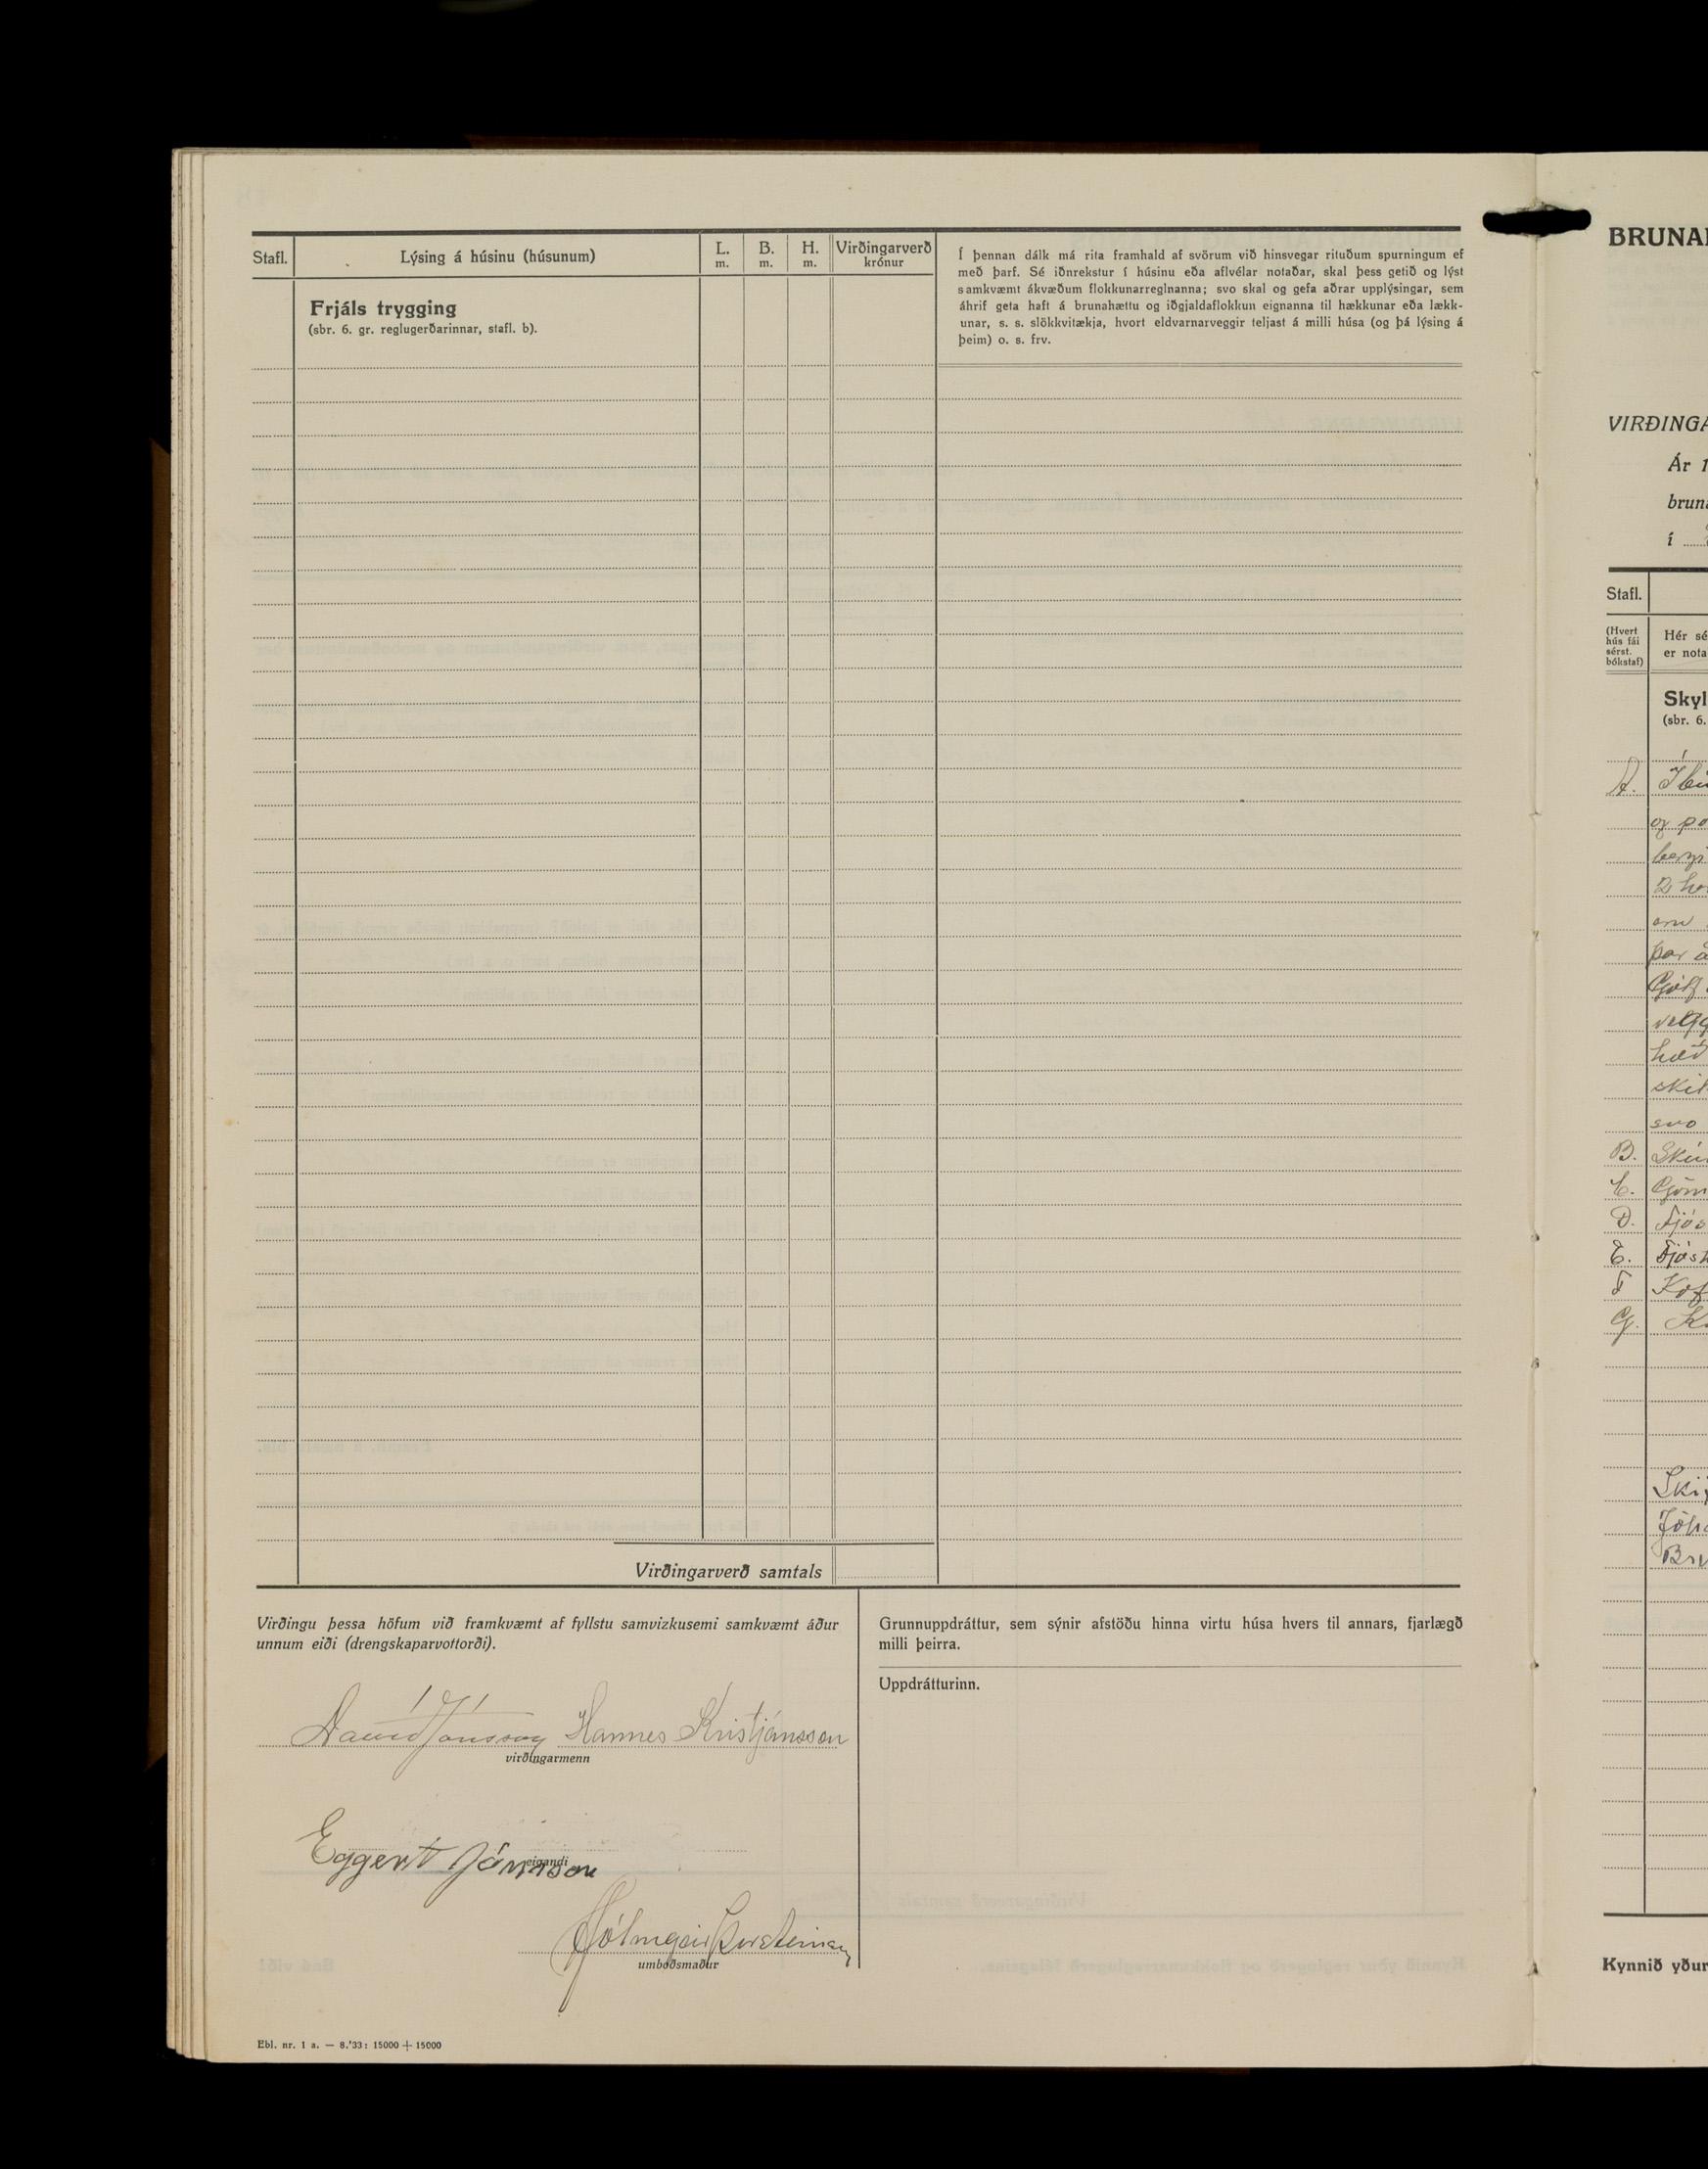 Stafl.
Lýsing á húsinu (húsunum)
L.
m.
B.
m.
H.
m.
Virðingarverð
krónur
Frjáls trygging
(sbr. 6. gr. reglugerðarinnar, stafl. b).
Í þennan dálk má rita framhald af svörum við hinsvegar rituðum spurningum ef
með þarf. Sé iðnrekstur í húsinu eða aflvélar notaðar, skal þess getið og lýst
samkvæmt ákvæðum flokkunarreglnanna; svo skal og gefa aðrar upplýsingar, sem
áhrif geta haft á brunahættu og iðgjaldaflokkun eignanna til hækkunar eða lækk-
unar, s. s. slökkvitækja, hvort eldvarnarveggir teljast á milli húsa (og þá lýsing á
þeim) o. s. frv.
Virðingarverð samtals
Virðingu þessa höfum við framkvæmt af fyllstu samvizkusemi samkvæmt áður
unnum eiði (drengskaparvottorði).
Davíð Jónsson Hannes Kristjánsson
virðingarmenn
Eggert Jónsson
eigandi
Hólmgeir Þorsteinsson
umboðsmaður
Grunnuppdráttur, sem sýnir afstöðu hinna virtu húsa hvers til annars, fjarlægð
milli þeirra.
Uppdrátturinn.
Ebl. nr. 1 a. — 8.'33: 15000 + 15000
BRUNA
VIRÐINGA
Ár 1
brun
í
Stafl.
(Hvert
hús fái
sérst.
bókstaf)
Hér sé
er nota
Skyl
(sbr. 6.
A. Íbú
og
2
þar
vegg
hæð
skil
svo
B. Skú
C.
D. Fjós
E. Fjósh
F
G.
Jóh
Kynnið yður